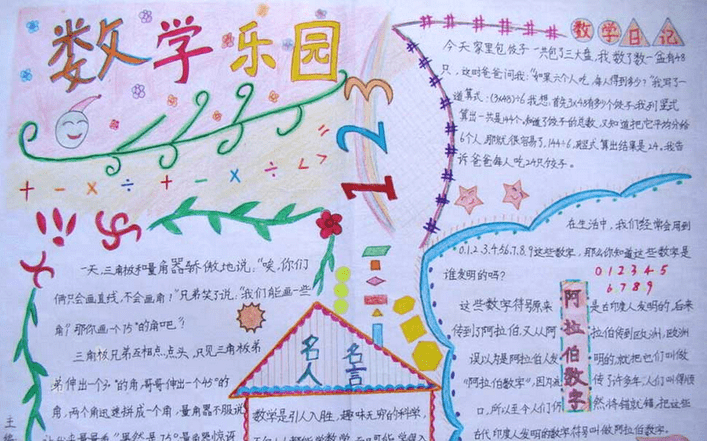 数学乐园
+ - × ÷ + - × ÷ < >
1 2 3
数学日记
今天家里包饺子一共包了三大盘,我数了数一盆有48
只,这时爸爸问我:"如果六个人吃,每人得到多少?"我写了一
道算式:(3×48)÷6 我想:首先3×48有多少个饺子,我列竖式
算出一共是144个,知道了饺子的总数,又知道把它平均分给
6个人,那就很容易了,144÷6,竖式算出结果是24。我告
诉爸爸每人吃24只饺子。
一天,三角板和量角器骄傲地说:"唉,你们
俩只会画直线,不会画角!"兄弟笑了说:"我们能画一些
角?那你画一个75°的角吧?"
三角板兄弟互相点点头,只见三角板弟
弟伸出一个30°的角,哥哥伸出一个45°的
角,两个角迅速拼成一个角,量角器不服说
名人
名言
数学是引人入胜,趣味无穷的科学,
在生活中,我们经常会用到
0.1.2.3.4.5.6.7.8.9这些数字,那么你知道这些数字是
谁发明的吗?
0 1 2 3 4 5
6 7 8 9
阿拉伯数字
这些数字符号原来是古印度人发明的,后来
传到了阿拉伯,又从阿拉伯传到欧洲,欧洲
误以为是阿拉伯人发明的,就把它们叫做
"阿拉伯数字",因为流传了许多年,人们叫得顺
口,所以至今人们仍然将错就错,把这些
古代印度人发明的数字符号叫做阿拉伯数字。